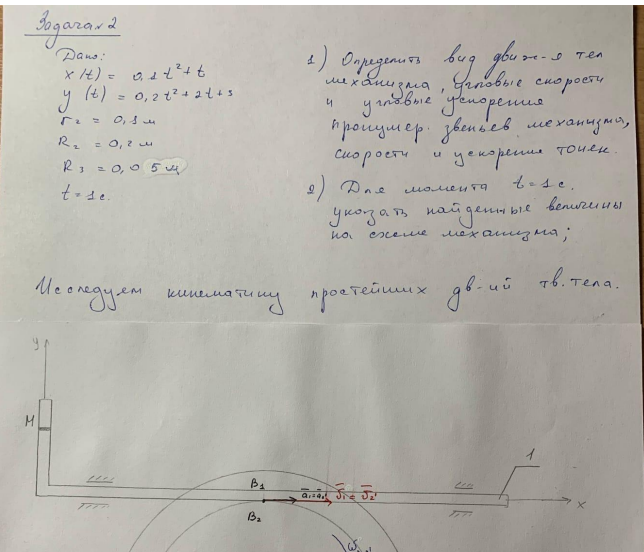 Задача №2
Дано:
x(t) = 0,1t²+t
y(t) = 0,2t²+2t+3
r₂ = 0,1 м
R₂ = 0,2 м
R₃ = 0,05 м
t = 1 с.
1) Определить вид движ-я тел
механизма, угловые скорости
и угловые ускорения
пронумер. звеньев механизма,
скорости и ускорения точек.
2) Для момента t = 1 с.
указать найденные величины
на схеме механизма;
Исследуем кинематику простейших дв-ий тв. тела.
y
M
1
B₁
B₂
x